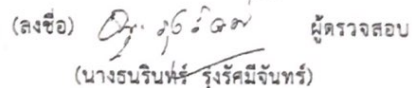 (ลงชื่อ) ผู้ตรวจสอบ
(นางธนรินทร์ รุ่งรัศมีจันทร์)